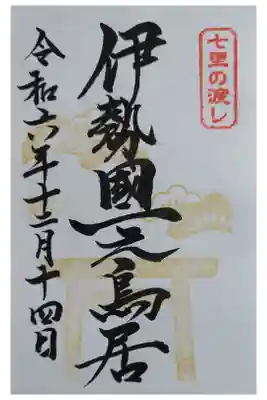 七里の渡し
伊勢國一之鳥居
令和六年十二月十四日